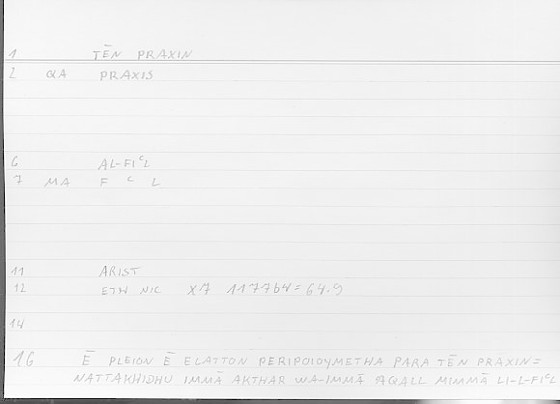 1 TĒN PRAXIN
2 QA PRAXIS
6 AL-FIᶜL
7 MA F ᶜ L
11 ARIST
12 ETH NIC X7 1177b4=64.9
14
16 Ē PLEION Ē ELATTON PERIPOIOYMETHA PARA TĒN PRAXIN=
NATTAKHIDHU IMMĀ AKTHAR WA-IMMĀ AQALL MIMMĀ LI-L-FIᶜL